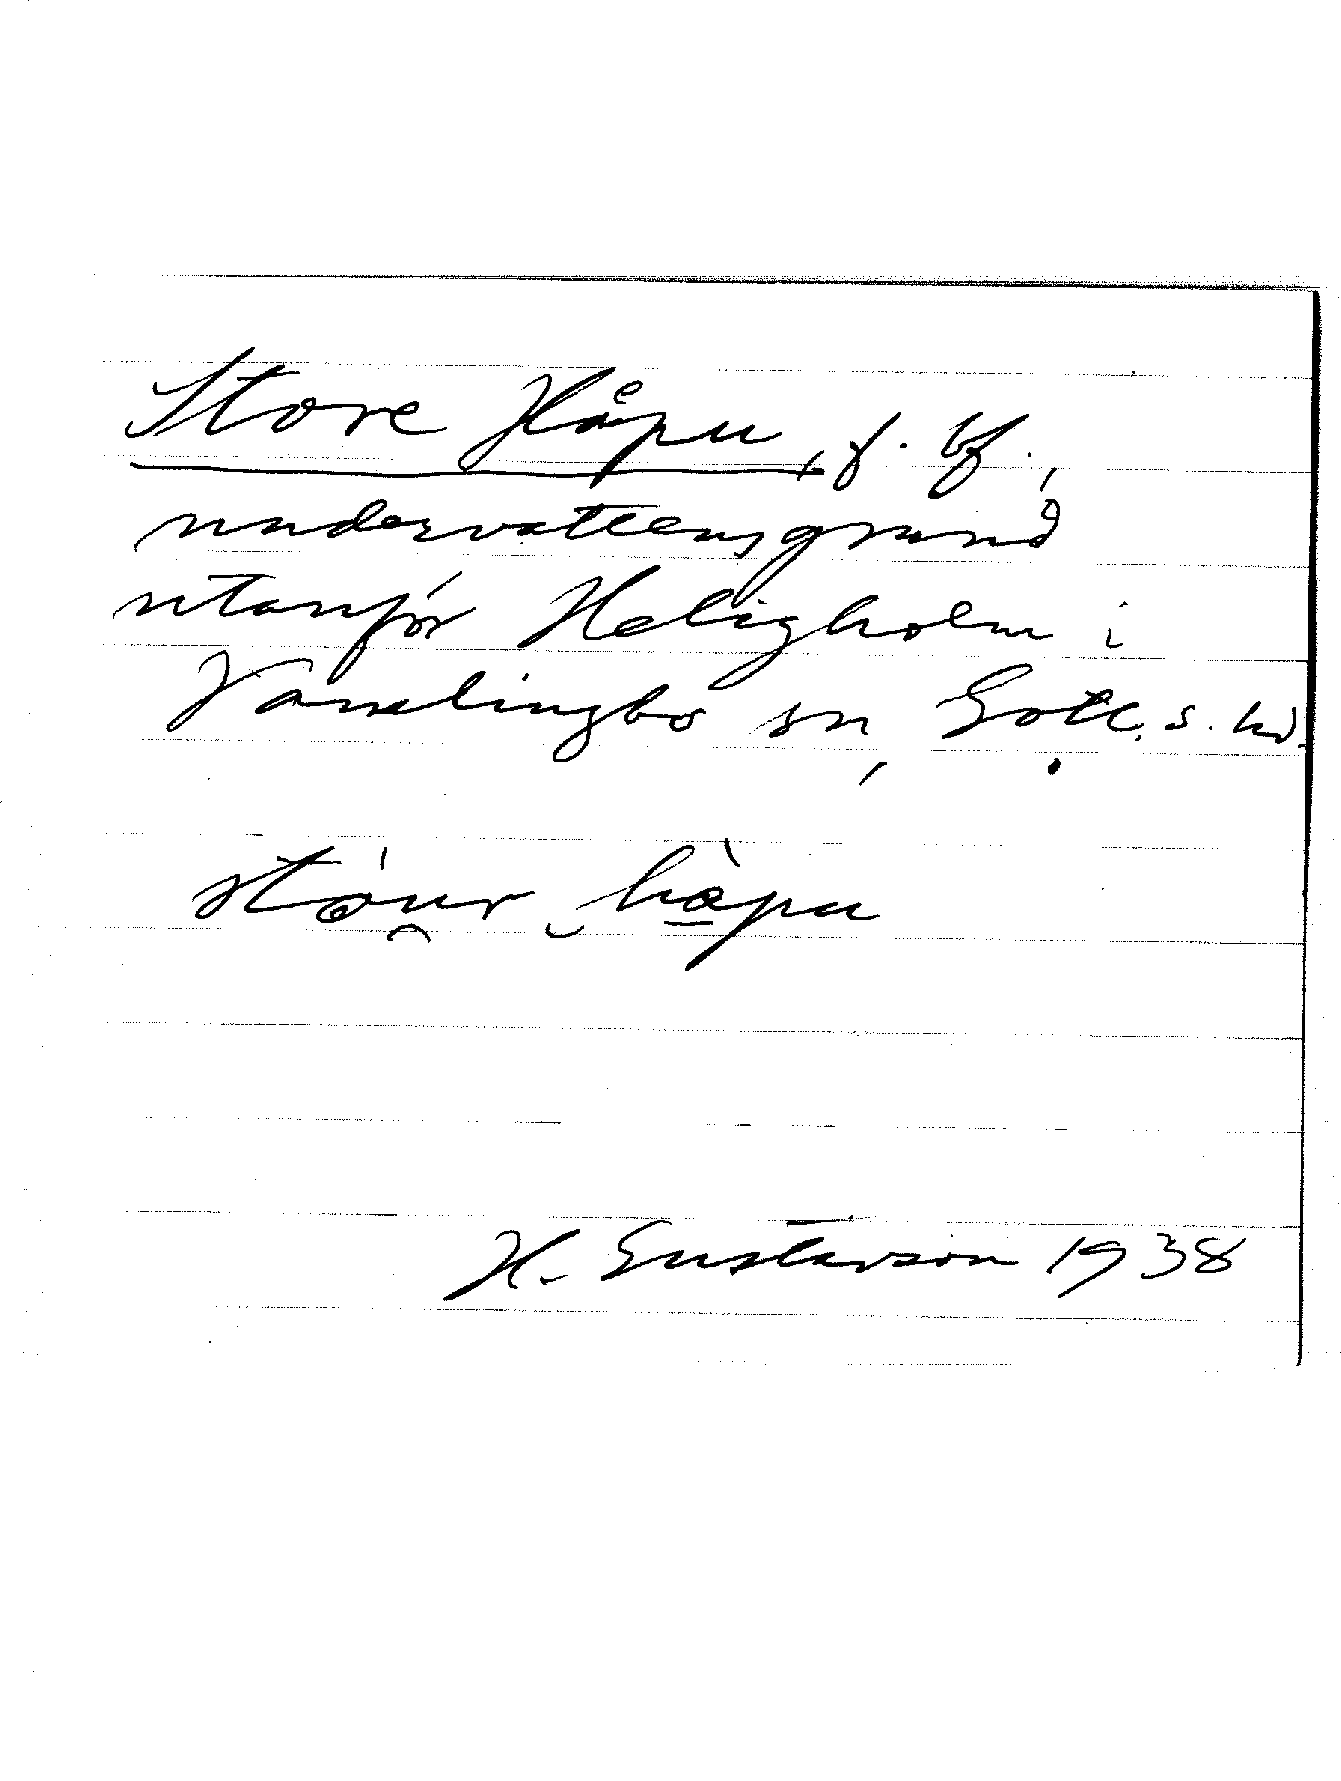 Store Håpu, f. bf.,
undervattensgrund
utanför Heligholm i
Vamlingbo sn, Gotl. s. hd.
stǻu̯r ‿hàpu
H. Gustavson 1938